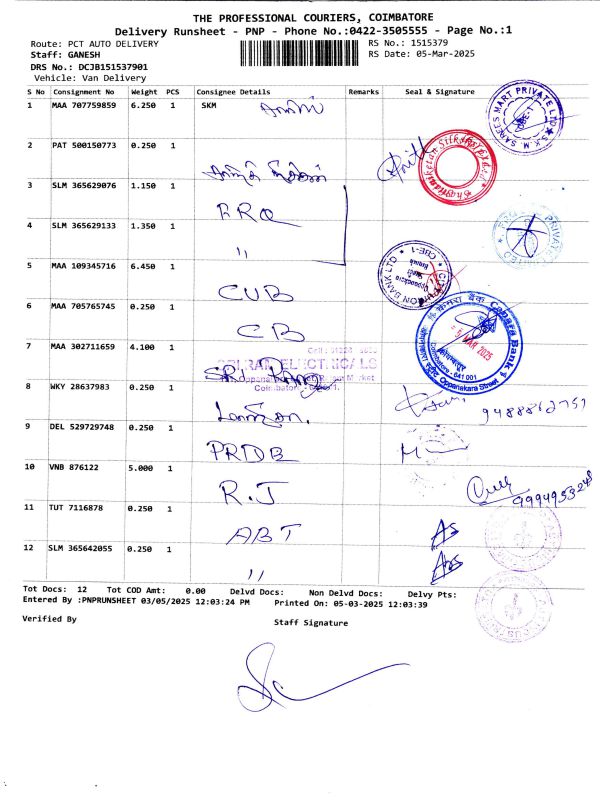 THE PROFESSIONAL COURIERS, COIMBATORE
Delivery Runsheet - PNP - Phone No.:0422-3505555 - Page No.:1
Route: PCT AUTO DELIVERY
RS No.: 1515379
Staff: GANESH
RS Date: 05-Mar-2025
DRS No.: DCJB151537901
Vehicle: Van Delivery
S No Consignment No Weight PCS Consignee Details Remarks Seal & Signature
1 MAA 707759859 6.250 1 SKM
S.K.M. SAREES MART PRIVATE LTD CBE-1
2 PAT 500150773 0.250 1
3 SLM 365629076 1.150 1
4 SLM 365629133 1.350 1
"
5 MAA 109345716 6.450 1 CUB
CITY UNION BANK LTD CBE-1
6 MAA 705765745 0.250 1 CB
केनरा बैंक Canara Bank
MAR 2025
Coimbatore - 641 001
Oppanakara Street
7 MAA 302711659 4.100 1
SRI RAM ELECTRICALS
8 WKY 28637983 0.250 1
9 DEL 529729748 0.250 1 PRTDB
10 VNB 876122 5.000 1 R.J
11 TUT 7116878 0.250 1 ABT
12 SLM 365642055 0.250 1 "
Tot Docs: 12 Tot COD Amt: 0.00 Delvd Docs: Non Delvd Docs: Delvy Pts:
Entered By :PNPRUNSHEET 03/05/2025 12:03:24 PM Printed On: 05-03-2025 12:03:39
Verified By
Staff Signature